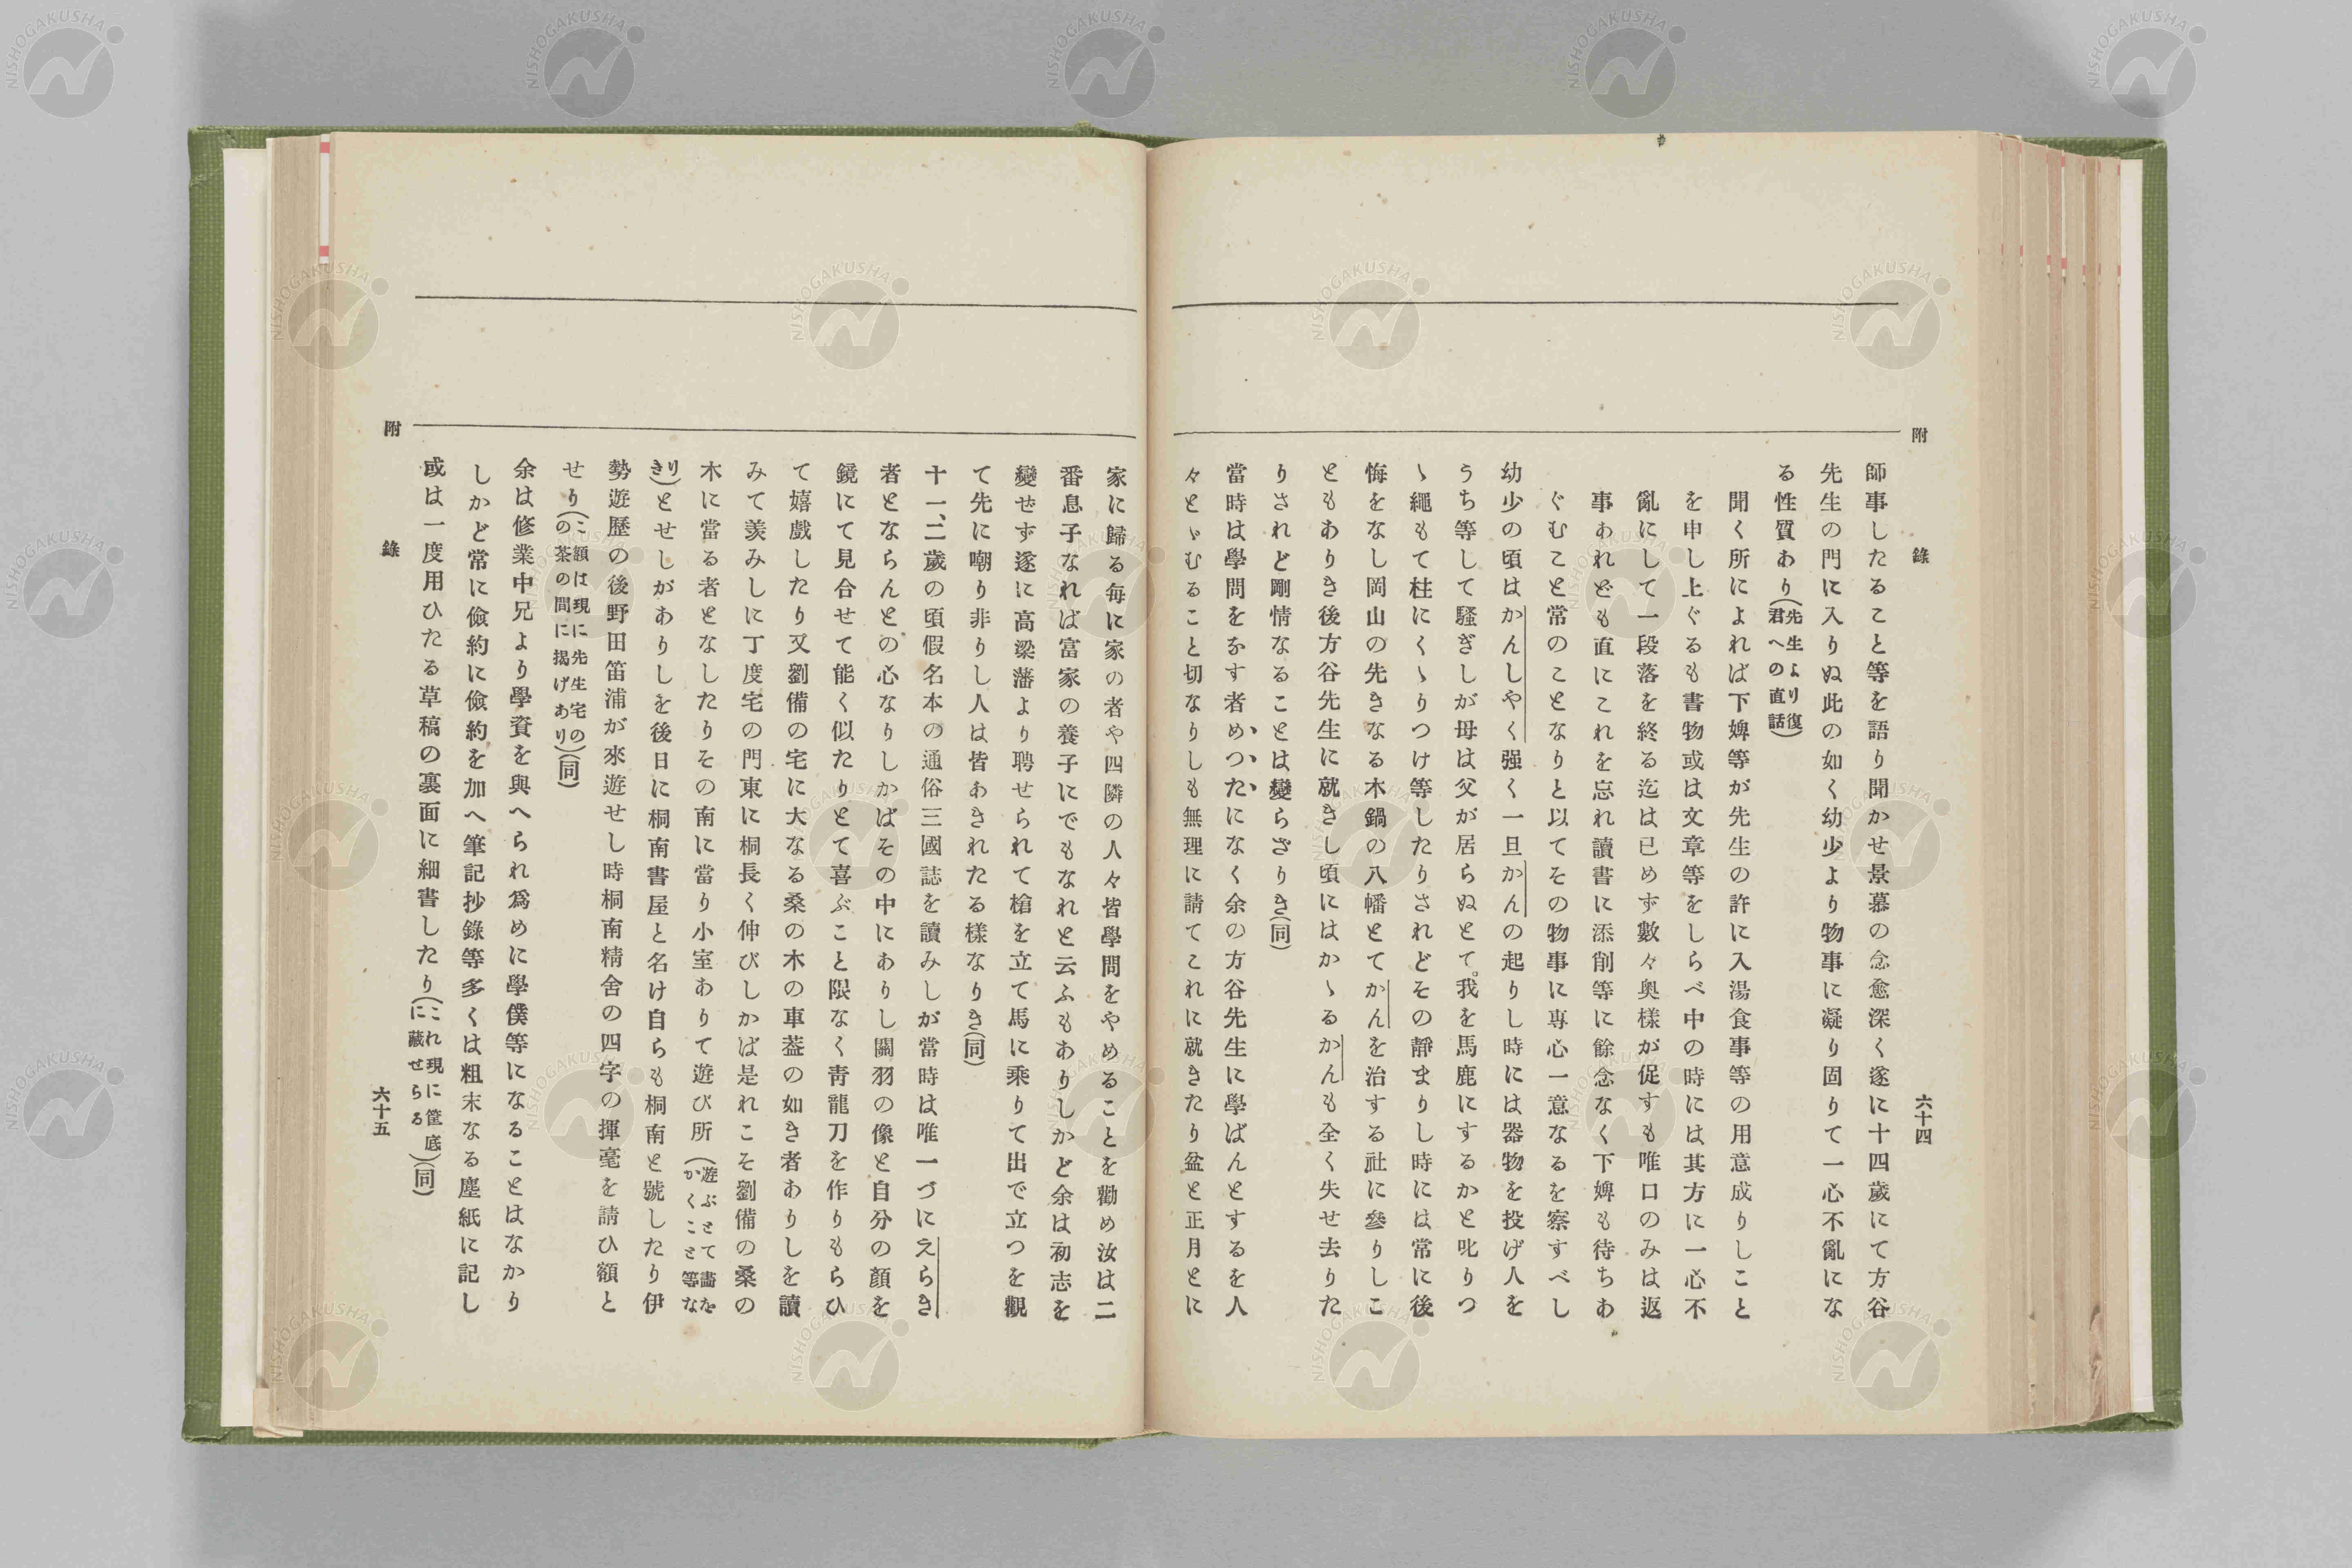 附錄
六十四
師事したること等を語り聞かせ景慕の念愈深く遂に十四歲にて方谷
先生の門に入りぬ此の如く幼少より物事に凝り固りて一心不亂にな
る性質あり(先生より復君への直話)
聞く所によれば下婢等が先生の許に入湯食事等の用意成りしこと
を申し上ぐるも書物或は文章等をしらべ中の時には其方に一心不
亂にして一段落を終る迄は已めず數々奥樣が促すも唯口のみは返
事あれども直にこれを忘れ讀書に添削等に餘念なく下婢も待ちあ
ぐむこと常のことなりと以てその物事に專心一意なるを察すべし
幼少の頃はかんしやく强く一旦かんの起りし時には器物を投げ人を
うち等して騷ぎしが母は父が居らぬとて。我を馬鹿にするかと叱りつ
ゝ繩もて柱にくゝりつけ等したりされどその靜まりし時には常に後
悔をなし岡山の先きなる木鍋の八幡とてかんを治する社に參りしこ
ともありき後方谷先生に就きし頃にはかゝるかんも全く失せ去りた
りされど剛情なることは變らざりき(同)
當時は學問をなす者めつたになく余の方谷先生に學ばんとするを人
々とゞむること切なりしも無理に請てこれに就きたり盆と正月とに
家に歸る每に家の者や四隣の人々皆學問をやめることを勸め汝は二
番息子なれば富家の養子にでもなれと云ふもありしかど余は初志を
變せず遂に高梁藩より聘せられて槍を立て馬に乘りて出で立つを觀
て先に嘲り非りし人は皆あきれたる樣なりき(同)
十一、二歲の頃假名本の通俗三國誌を讀みしが當時は唯一づにえらき
者とならんとの心なりしかばその中にありし關羽の像と自分の顏を
鏡にて見合せて能く似たりとて喜ぶこと限なく靑龍刀を作りもらひ
て嬉戲したり又劉備の宅に大なる桑の木の車葢の如き者ありしを讀
みて羨みしに丁度宅の門東に桐長く伸びしかば是れこそ劉備の桑の
木に當る者となしたりその南に當り小室ありて遊び所(遊ぶとて書をかくこと等な
りき)とせしがありしを後日に桐南書屋と名け自らも桐南と號したり伊
勢遊歷の後野田笛浦が來遊せし時桐南精舍の四字の揮毫を請ひ額と
せり(この額は現に先生宅の茶の間に揭げあり)(同)
余は修業中兄より學資を與へられ爲めに學僕等になることはなかり
しかど常に儉約に儉約を加へ筆記抄錄等多くは粗末なる塵紙に記し
或は一度用ひたる草稿の裏面に細書したり(これ現に筐底に藏せらる)(同)
附錄
六十五